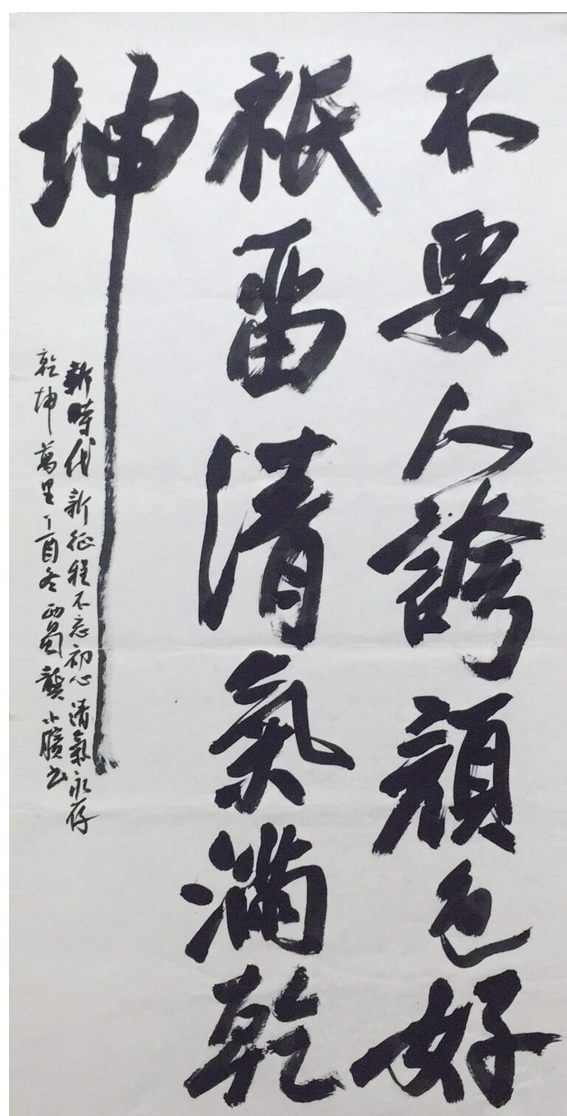 不要人誇顏色好
祇留清氣滿乾
坤
新時代新征程不忘初心清氣永存
乾坤萬里丁酉冬西蜀龔小膑书